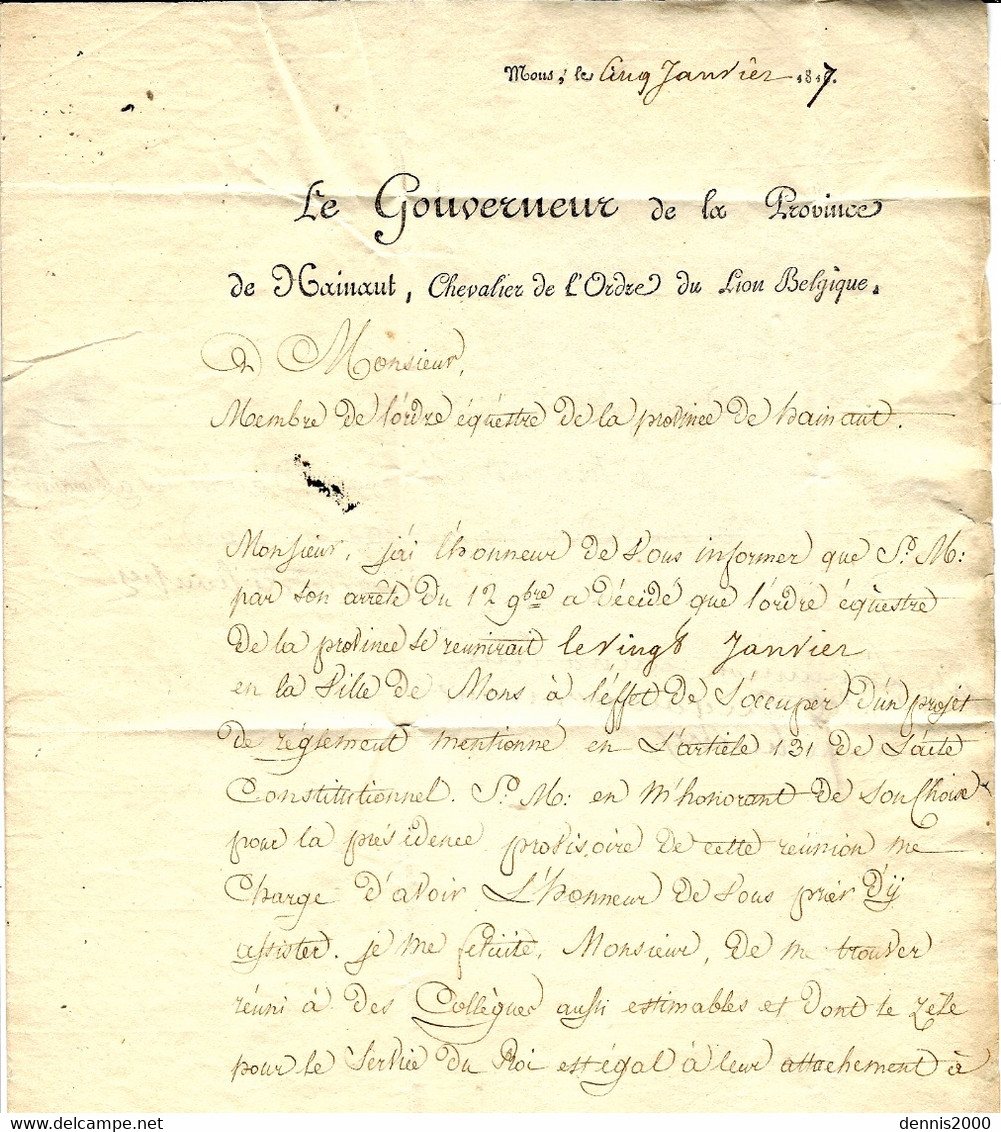 Mons, le Cinq Janvier 1817.
Le Gouverneur de la Province
de Hainaut, Chevalier de l'Ordre du Lion Belgique.
A Monsieur,
Membre de l'ordre équestre de la province de hainaut.
Monsieur, j'ai l'honneur de Vous informer que S. M:
par son arrêté du 12 9bre a décidé que l'ordre équestre
de la province se reunirait le vingt Janvier
en la Ville de Mons à l'effet de S'occuper d'un projet
de réglement mentionné en L'article 131 de L'acte
Constitutionnel. S. M: en m'honorant de son Choix
pour la présidence provisoire de cette réunion me
Charge d'avoir L'honneur de Vous prier d'ÿ
assister. je me felicite, Monsieur, de me trouver
réuni à des Collègues aussi estimables et dont le zèle
pour le Service du Roi est égal à leur attachement à
dennis2000